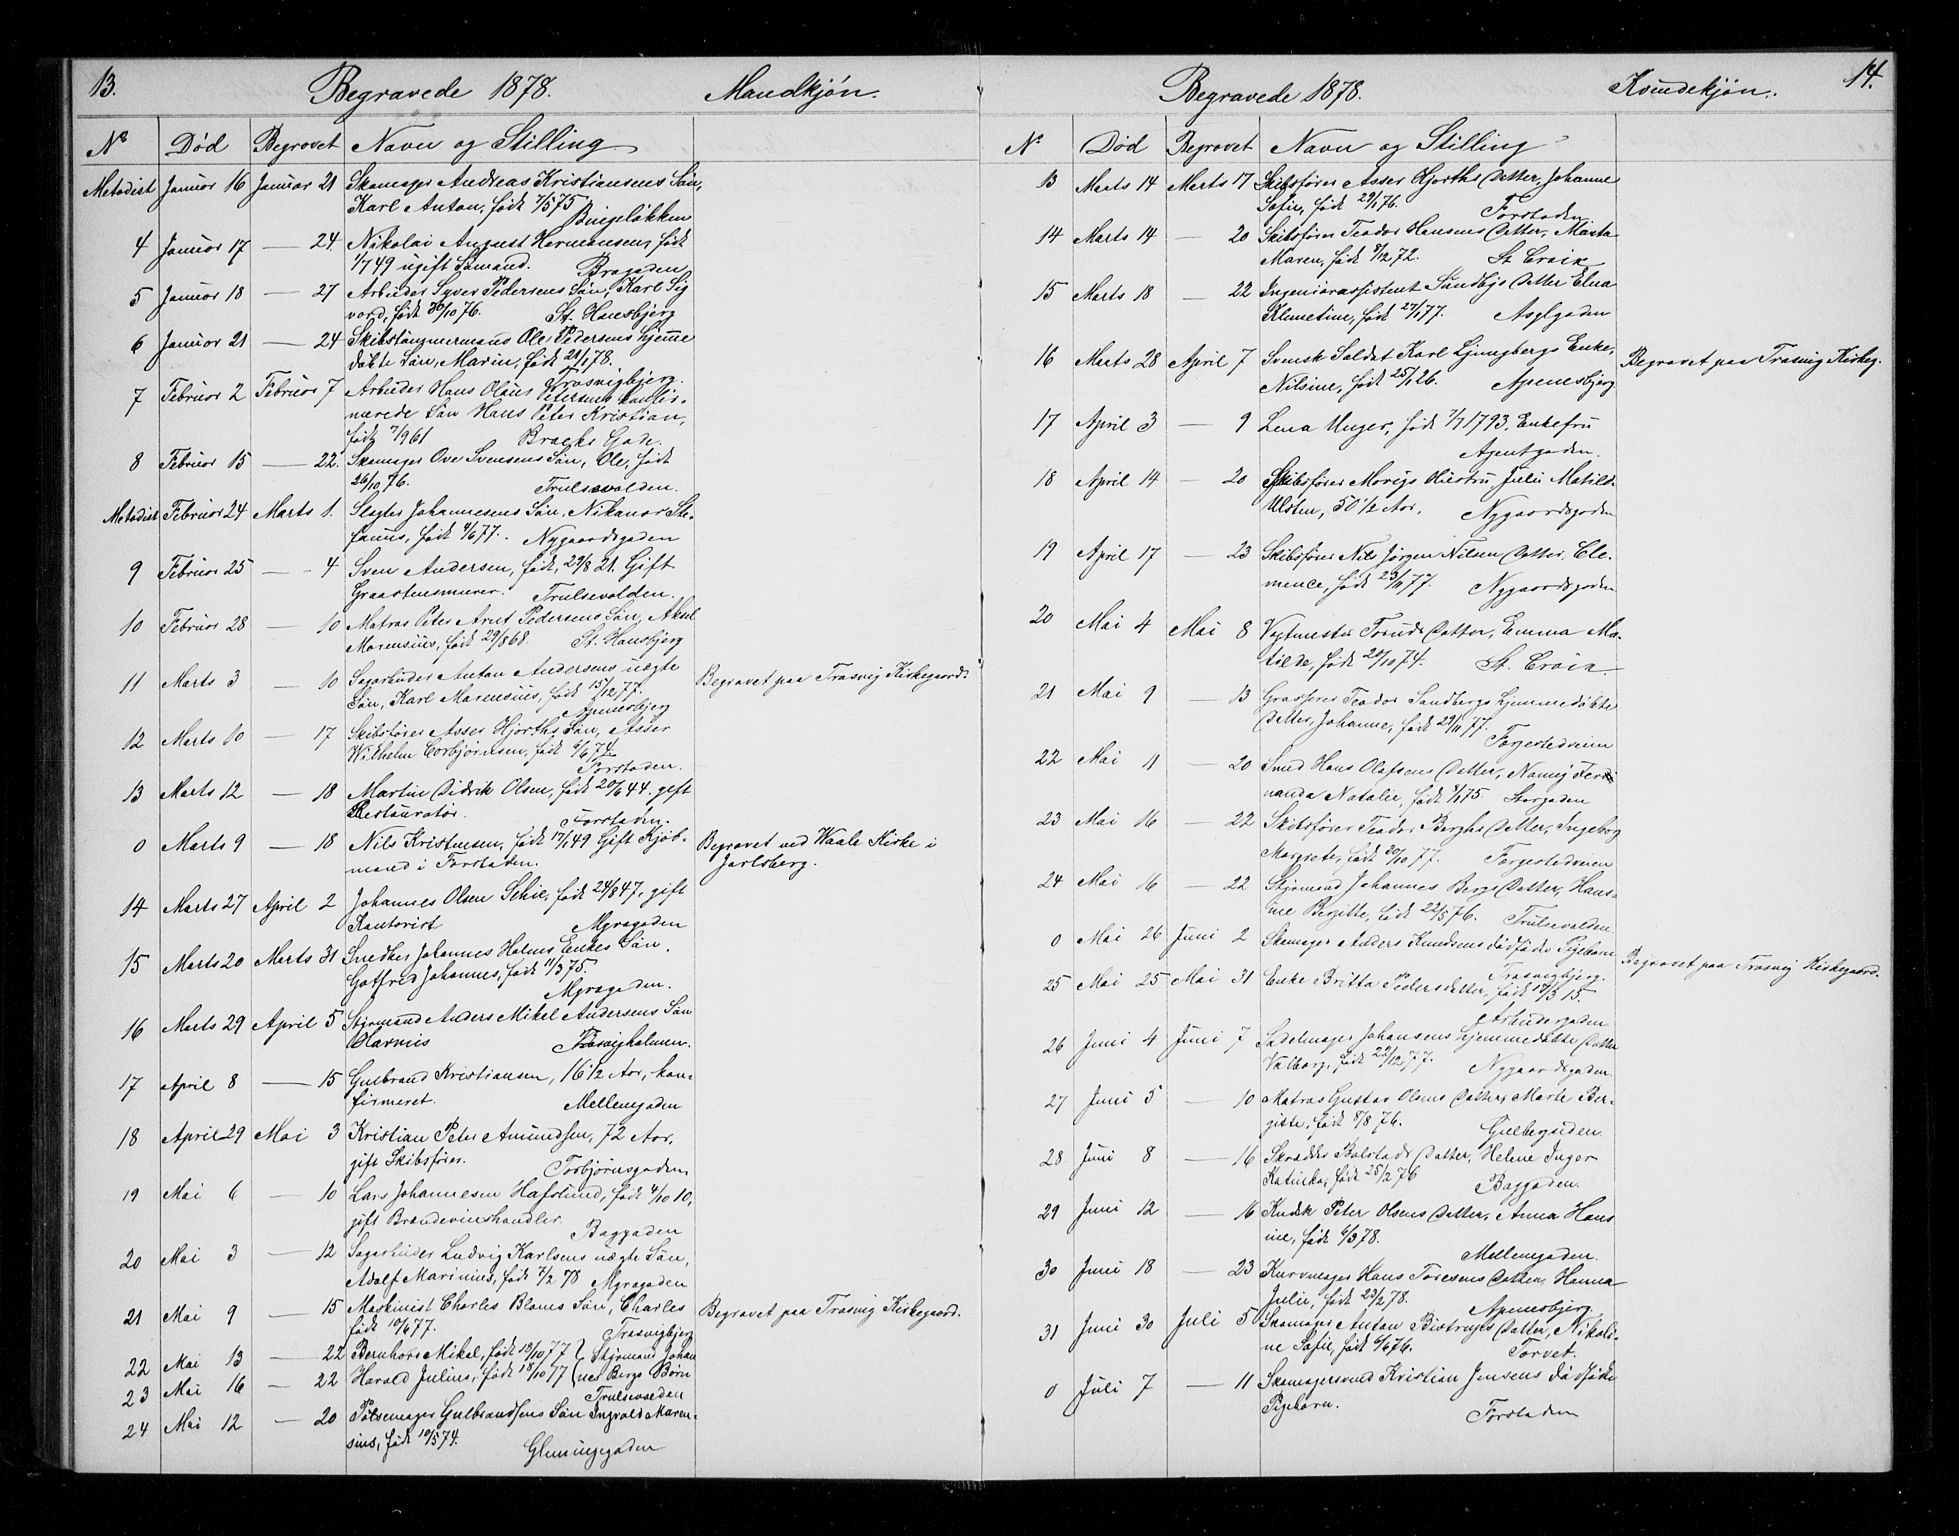 13.
Begravede 1878. Mandkjön.
No Död Begravet Navn og Stilling
Metodist Januar 16 Januar 21 Skomager Andreas Kristiansens Sön,
Karl Anton, födt 7/5 75
Bingeløkken
4 Januar 17 — 24. Nikolai August Hermansen, födt
1/7 49 ugift Sömand. Brogaden
5 Januar 18 — 27 Arbeider Syver Pedersens Sön, Karl Sig
vard, födt 30/10 76. St. Hansbjerg
6 Januar 21 — 24 Skibstömmermand Ole Pedersens hjemme
döbte Sön, Marin, födt 21/1 78.
Trosvigbjerg.
7 Februar 2 Februar 7 Arbeider Hans Olaus Petersens konfir-
merede Sön Hans Peter Kristian,
födt 7/9 61 Brochs Gade.
8 Februar 15 — 22. Skomager Ove Svensens Sön, Ole, födt
26/10 76. Trulsevolden.
Metodist Februar 24 Marts 1. Slagter Johannesens Sön, Nikanor Ste-
fanus, födt 4/6 77. Nygaardsgaden
9 Februar 25 — 4 Sven Andersen, födt 29/8 21. Gift
Graastensmurer. Trulsevolden.
10 Februar 28 — 10 Matros Peter Arnt Pedersens Sön, Aksel
Marensius, födt 29/8 68. St. Hansbjerg
11 Marts 3 — 10 Sagarbeider Anton Andersens uægte
Sön, Karl Marensius, födt 15/12 77.
Apenesbjerg
Begravet paa Trosvig Kirkegaard.
12 Marts 10 — 17 Skibsförer Asser Hjorths Sön, Asser
Wilhelm Corbjörnsen, födt 6/6 74
Forstaden.
13 Marts 12 — 18 Martin Didrik Olsen, födt 20/6 44. gift
Restauratör. Forstaden.
0 Marts 9 — 18 Nils Kristensen, födt 17/1 49 Gift Kjöb-
mand i Forstaden.
Begravet ved Waale Kirke i
Jarlsberg.
14 Marts 27 April 2 Johannes Olsen Schie, födt 24/8 47, gift
Kontorist Myragaden
15 Marts 20 Marts 31 Snedker Johannes Holms Enkes Sön,
Gotfred Johannes, födt 11/3 75.
Myragaden.
16 Marts 29 April 5 Styrmand Anders Mikel Andersens Sön
Harnius Trosvigholmen.
17 April 8 — 15 Gulbrand Kristiansen, 16 1/2 Aar, kon-
firmeret. Mellemgaden
18 April 29 Mai 3 Kristian Peter Amundsen, 72 Aar,
gift Skibsförer. Torbjörnsgaden
19 Mai 6 — 10 Lars Johannesen Hafslund, födt 4/10 10,
gift Brændevinshandler. Baggaden
20 Mai 3 — 12 Sagarbeider Ludvig Karlsens uægte Sön,
Adolf Marinius, födt 7/2 78 Myragaden
21 Mai 9 — 15 Maskinist Charles Bloms Sön, Charles
födt 10/6 77. Trosvigbjerg
Begravet paa Trosvig Kirkegaard.
22 Mai 13 — 22 Bernhard Mikel, födt 18/10 77 } Styrmand Johan
23 Mai 16 — 22 Harald Julius, födt 18/10 77 } nes Bergs Börn
Trulsevolden
24 Mai 12 — 20 Pölsemager Gulbrandsens Sön Ingvald Maren-
sius, födt 10/5 74. Glemmegaden
Begravede 1878. Kvindekjön. 14.
No Död Begravet Navn og Stilling
13 Marts 14 Marts 17 Skibsförer Asser Hjorths Datter, Johanne
Sofie, födt 29/1 76. Forstaden
14 Marts 14 — 20 Skibsförer Teodor Hansens Datter, Marta
Maren, födt 9/2 72. St Croix
15 Marts 18 — 22 Ingeniörassistent Sundbyes Datter Elna
Klemetine, födt 27/1 77. Asylgaden
16 Marts 28 April 7 Svensk Soldat Karl Ljungbergs Enke,
Nilsine, födt 25/1 26. Apenesbjerg
Begravet paa Trosvig Kirkeg.
17 April 3 — 9 Lena Unger, födt 7/7 1793. Enkefru
Agentgaden.
18 April 14 — 20 Skibsförer Morigs Hustru, Julie Matilde
Ulsten, 50 1/2 Aar. Nygaardsgaden
19 April 17 — 23 Skibsförer Nils Jørgen Nilsens Datter, Cle-
mence, födt 23/11 77. Nygaardsgaden
20 Mai 4 Mai 8 Vagtmester Foruds Datter, Emma Ma-
tilde, födt 20/10 74. St. Croix
21 Mai 9 — 13 Grosserer Teodor Sandbergs hjemmedöbte
Datter, Johanne, födt 29/11 77.
Torgestedveien
22 Mai 11 — 20 Smed Hans Olafsens Datter, Nanny Ferdi
nanda Natalie, födt 8/1 75. Storgaden
23 Mai 16 — 22 Skibsförer Teodor Berghs Datter, Ingeborg
Margrete, födt 30/10 77. Torgestedveien
24 Mai 16 — 22 Styrmand Johannes Bergs Datter, Hans-
ine Birgitte, födt 22/5 76. Trulsevolden.
0 Mai 26 Juni 2 Skomager Anders Knudsens dödfödte Pigebarn
Trosvigbjerg.
Begravet paa Trosvig Kirkegaard.
25 Mai 25 Mai 31 Enke Britta Pedersdatter, födt 18/3 15.
Arbeidergaden
26 Juni 4 Juni 7 Sadelmager Johansens hjemmedöbte Datter
Valborg, födt 22/12 77. Nygaardsgaden.
27 Juni 5 — 10 Matros Gustav Olsens Datter, Marte Bir-
gitte, födt 8/8 76. Gulbergsiden.
28 Juni 8 — 16 Skrædder Bolstads Datter, Helene Inger
Katinka, födt 25/2 76 Baggaden.
29 Juni 12 — 16 Kudsk Peter Olsens Datter, Anna Hans
ine, födt 6/3 78.
Mellemgaden.
30 Juni 18 — 23 Kurvmager Hans Toresens Datter, Hanna
Julie, födt 23/2 78. Apenesbjerg.
31 Juni 30 Juli 5 Skomager Anton Bistrups Datter, Nikoli-
ne Sofie, födt 6/6 76. Torvet.
0 Juli 7 — 11 Skomagersvend Kristian Jensens dödfödte
Pigebarn. Forstaden